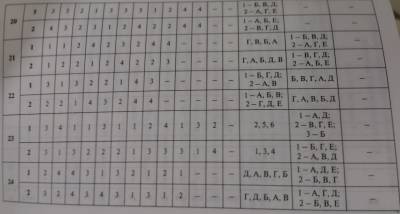 20 1 3 3 2 1 3 3 1 2 4 4 – – – 1 – Б, В, Д; –
2 – А, Г, Е
2 4 3 2 3 1 2 4 2 4 4 – – – 1 – А, Б, Е; –
2 – В, Г, Д
21 1 1 1 2 4 2 3 2 4 4 – – – Г, В, Б, А 1 – Б, В, Д; –
2 – А, Г, Е
2 1 2 2 1 2 4 2 2 3 – – – Г, А, Б, Д, В 1 – В, Г, Д; –
2 – А, Б, Е
22 1 3 1 3 2 2 1 4 3 – – – – 1 – Б, Г, Д; Б, В, Г, А, Д –
2 – А, В
2 2 2 1 4 3 2 4 4 – – – – 1 – А, Б, В; Г, А, В, Б, Д –
2 – Г, Д, Е
23 1 3 4 1 1 3 1 1 2 4 1 3 2 – 2, 5, 6 1 – А, Д; –
2 – В, Г, Е;
3 – Б
2 1 3 3 2 2 2 1 3 3 3 1 4 – 1, 3, 4 1 – Б, Г, Е; –
2 – А, В, Д
24 1 2 4 4 3 1 3 2 1 2 1 – – – Д, А, В, Г, Б 1 – А, Д, Е; –
2 – Б, В, Г
2 3 2 4 3 4 3 1 3 1 2 – – – Г, Д, Б, А, В 1 – А, Г, Д; –
2 – Б, В, Е